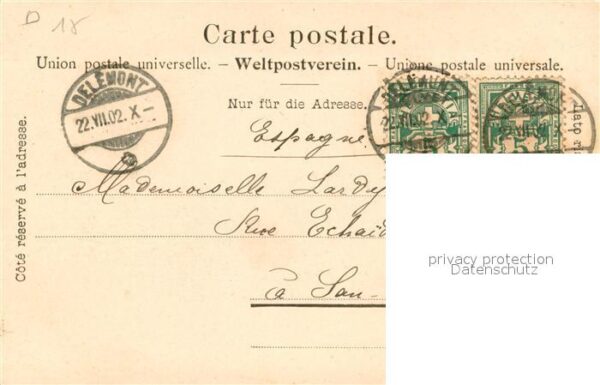 D 18
Carte postale.
Union postale universelle. – Weltpostverein. – Unione postale universale.
DELÉMONT
22.VII.02. X –
Nur für die Adresse.
Côté réservé à l'adresse.
Espagne
Mademoiselle Lardy
Rue Echaïd
à San-
privacy protection
Datenschutz